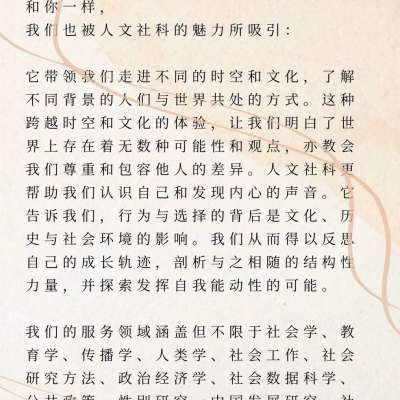 和你一样，
我们也被人文社科的魅力所吸引：
它带领我们走进不同的时空和文化，了解
不同背景的人们与世界共处的方式。这种
跨越时空和文化的体验，让我们明白了世
界上存在着无数种可能性和观点，亦教会
我们尊重和包容他人的差异。人文社科更
帮助我们认识自己和发现内心的声音。它
告诉我们，行为与选择的背后是文化、历
史与社会环境的影响。我们从而得以反思
自己的成长轨迹，剖析与之相随的结构性
力量，并探索发挥自我能动性的可能。
我们的服务领域涵盖但不限于社会学、教
育学、传播学、人类学、社会工作、社会
研究方法、政治经济学、社会数据科学、
公共政策、性别研究、中国发展研究、社